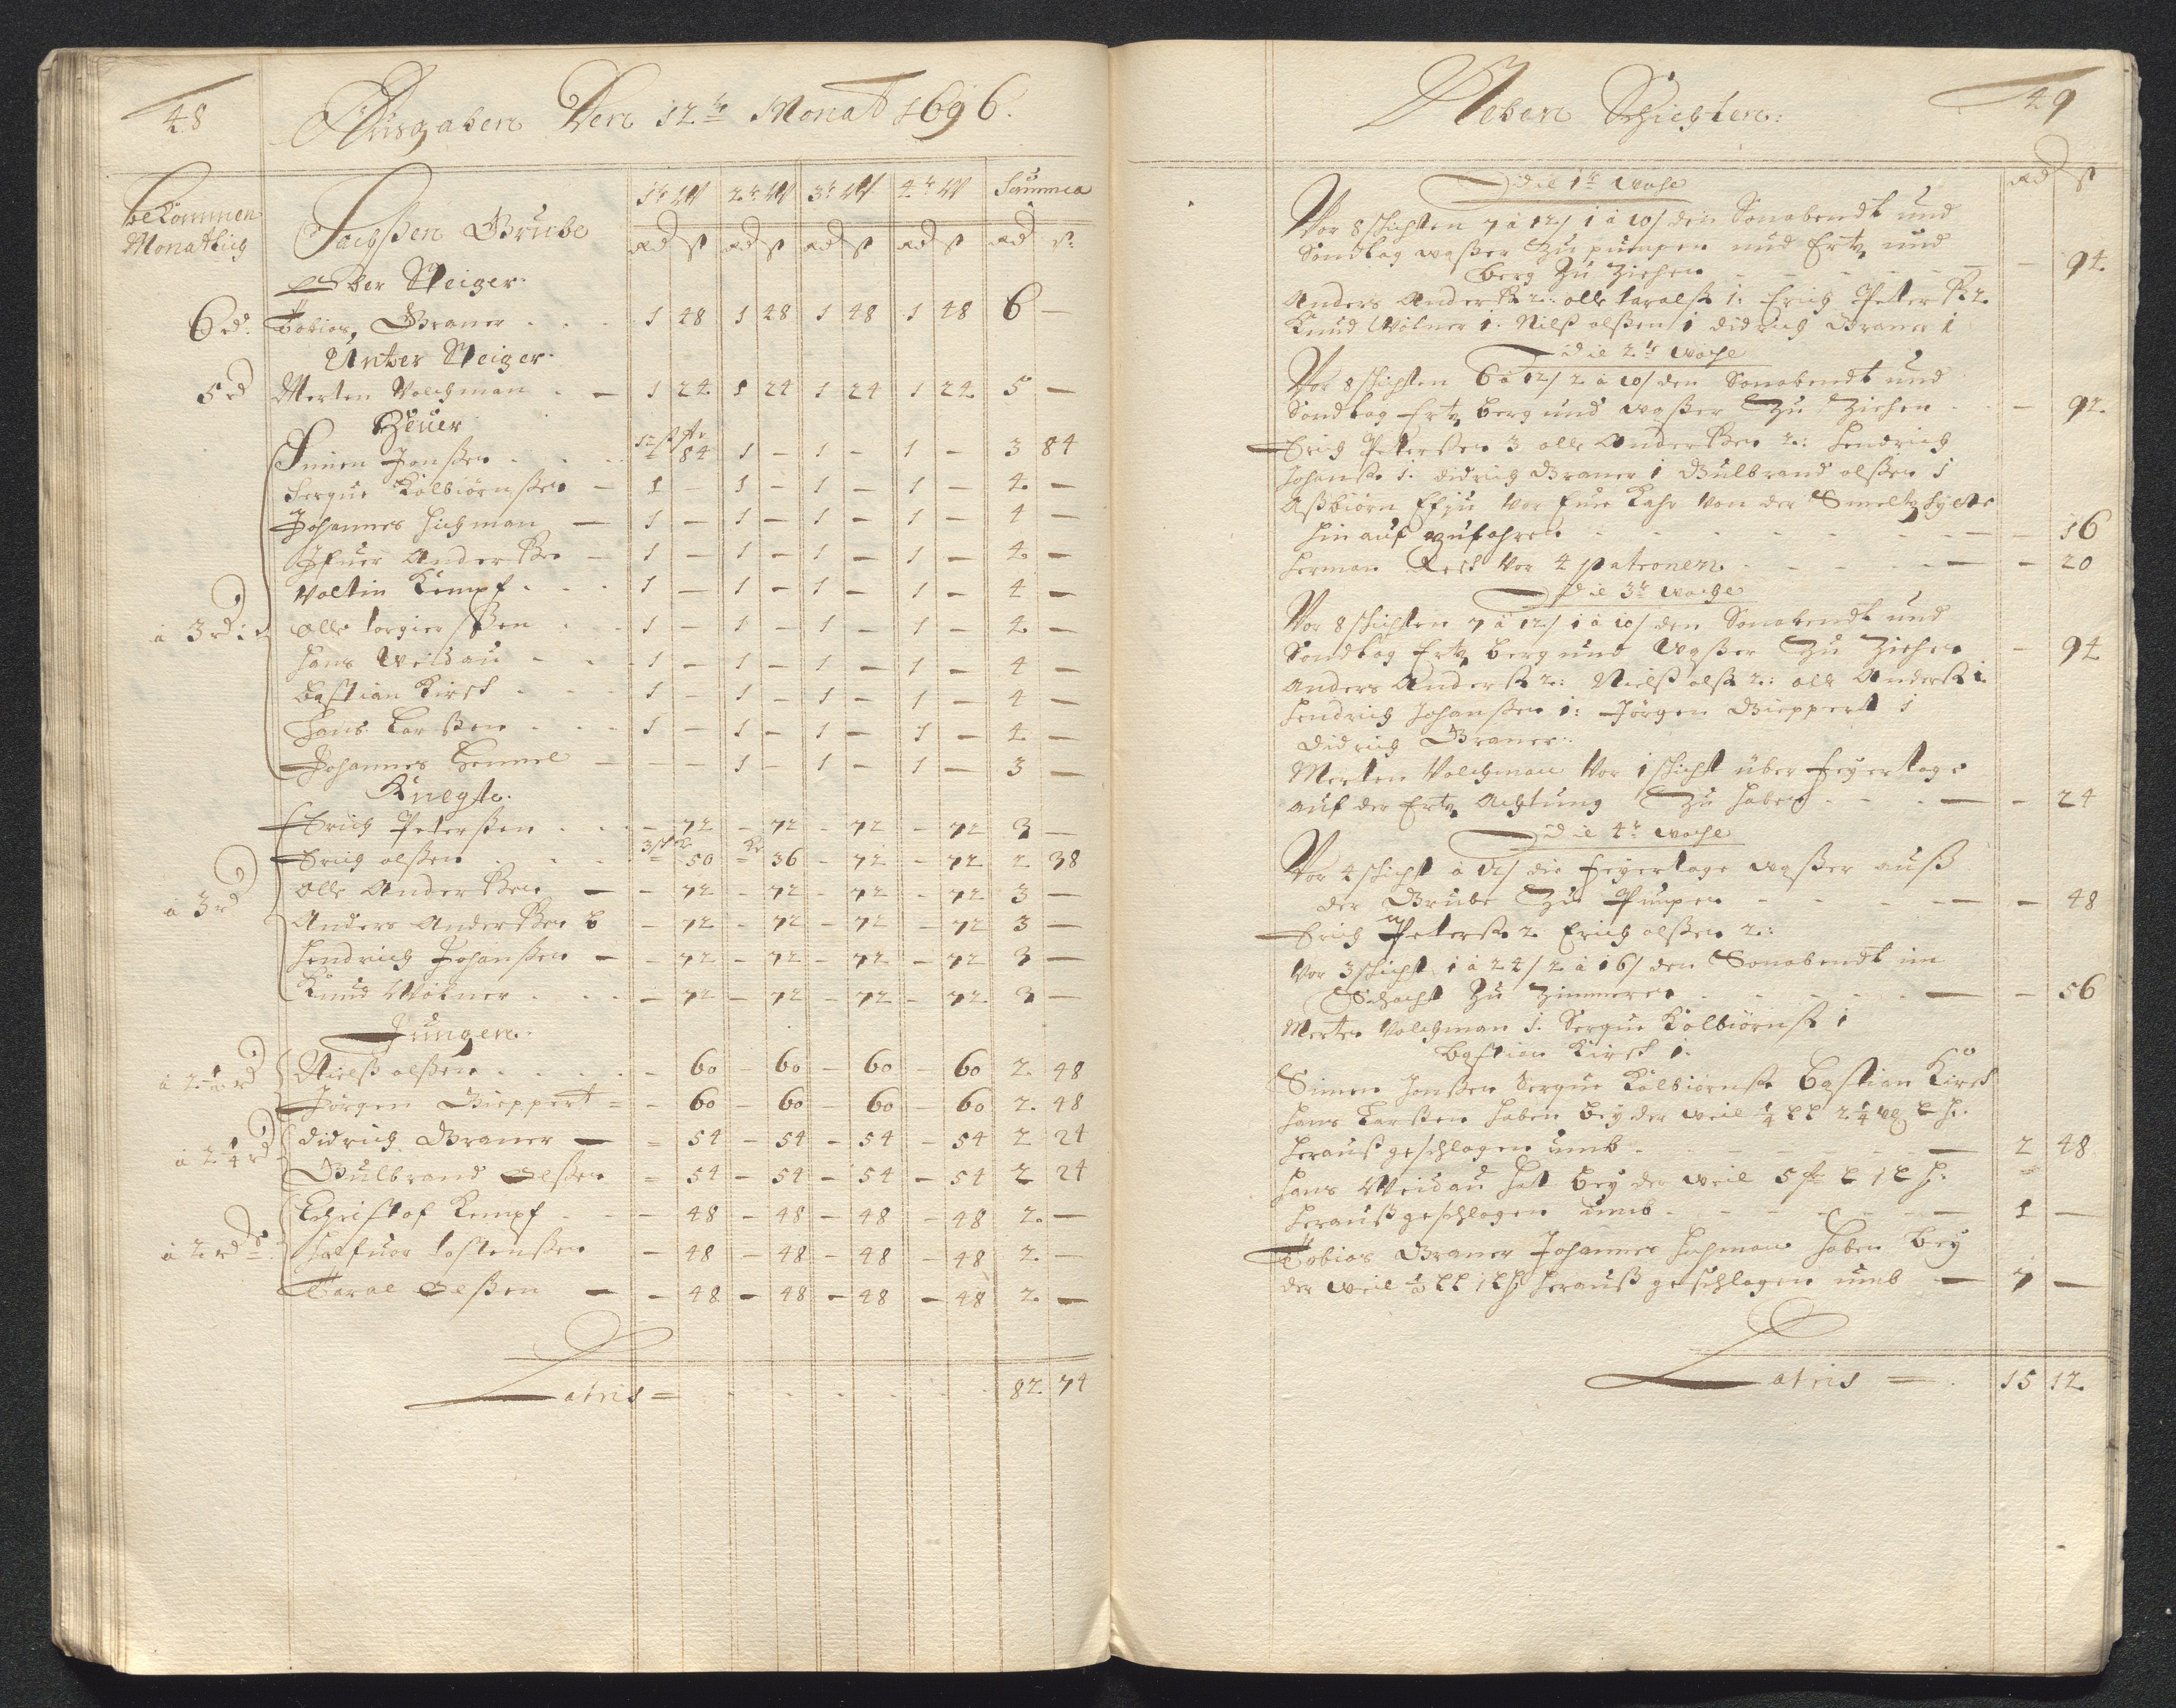 48
Ausgaben Den 12te Monat 1696.
bekommen Monatlich
Sachßen Grube
1te W 2te W 3te W 4te W Summa
Rd s Rd s Rd s Rd s Rd s:
Ober Steiger.
6 rd. Tobias Graner 1 48 1 48 1 48 1 48 6 —
Unter Steiger.
5 rd Merten Volchman — 1 24 1 24 1 24 1 24 5 —
Heuer
Simen Jonßen 84 1 — 1 — 1 — 3 84
Sergue Kolbiörnßen — 1 — 1 — 1 — 1 — 4 —
Johannes Hichman — 1 — 1 — 1 — 1 — 4 —
Ifuer Anderßen — 1 — 1 — 1 — 1 — 4 —
Valtin Kempf 1 — 1 — 1 — 1 — 4 —
a 3 rd: Olle torgierßen 1 — 1 — 1 — 1 — 4 —
Hans Weidau 1 — 1 — 1 — 1 — 4 —
Bastian Kirsch 1 — 1 — 1 — 1 — 4 —
Hans Larßen 1 — 1 — 1 — 1 — 4 —
Johannes Hemmel — — 1 — 1 — 1 — 3 —
Knegte.
Erich Peterßen — 72 — 72 — 72 — 72 3 —
Erich olßen 50 36 — 72 — 72 2 38
a 3 rd Olle Anderßen — — 72 — 72 — 72 — 72 3 —
Anders Anderßen — 72 — 72 — 72 — 72 3 —
Hendrich Johanßen — — 72 — 72 — 72 — 72 3 —
Knud Wökner — 72 — 72 — 72 — 72 3 —
Jungen.
a 2½ rd Nielß olßen — 60 — 60 — 60 — 60 2. 48
Jörgen Gieppert — 60 — 60 — 60 — 60 2. 48
a 2¼ rd didrich Graner — = 54 — 54 — 54 — 54 2 24
Gulbrand olßen = 54 — 54 — 54 — 54 2 24
Christof Kempf — 48 — 48 — 48 — 48 2. —
a 2 rd Halfuor tostenßen — 48 — 48 — 48 — 48 2. —
Taral olßen — — 48 — 48 — 48 — 48 2. —
Latris = 82 74
Neben Schichten:
49
Rd s
Die 1te woche
Vor 8 schichten 7 a 12/ 1 a 10/ den Sonabendt und
Sondtag waßer Zu pumpen und Ertz und
berg Zu Ziehen — 94
Anders Anderß 2: olle taralß 1: Erich Peterß 2.
Knud Wökner 1. Nilß olßen 1 didrich Graner 1
Die 2te woche
Vor 8 schichten 6 a 12/ 2 a 10/ den Sonabendt und
Sondtag Ertz berg und waßer Zu Ziehen — 92.
Erich Peterßen 3 olle Anderßen 2: Hendrich
Johanß 1. didrich Graner 1 Gulbrand olßen 1
Aßbiörn vor Eine Kahr von der Smeltzhytte
hin auf zufahren — 16
Herman vor 4 patronen — 20
Die 3te woche
Vor 8 schichten 7 a 12/ 1 a 10/ den Sonabendt und
Sondtag Ertz berg und Waßer Zu Ziehen — 94
Anders Anderß 2: Nielß olß 2: olle Anderß 1.
Hendrich Johanßen 1: Jörgen Gieppert 1
didrich Graner.
Merten Volchman Vor 1 schicht über feyertage
auf der Ertz Achtung Zu haben — 24
Die 4te woche
Vor 4 schicht a 12/ die feyertage waßer auß
der Grube Zu Pumpen — 48
Erich Peterß 2 Erich olßen 2:
Vor 3 schicht 1 a 24/ 2 a 16/ den Sonabendt im
Schacht Zu Zimmeren — 56
Merten Volchman 1. Sergue Kolbiörnß 1
Bastian Kirsch 1.
Simen Jonßen Sergue Kolbiörnß Bastian Kirsch
Hans Larßen haben bey der weil ¼
heraußgeschlagen umb — 2 48
Hans Weidau hat bey der weil 5
heraußgeschlagen umb — 1 —
Tobias Graner Johannes Hichman haben bey
der weil heraußgeschlagen umb — 7 —
Latris — 15 12.